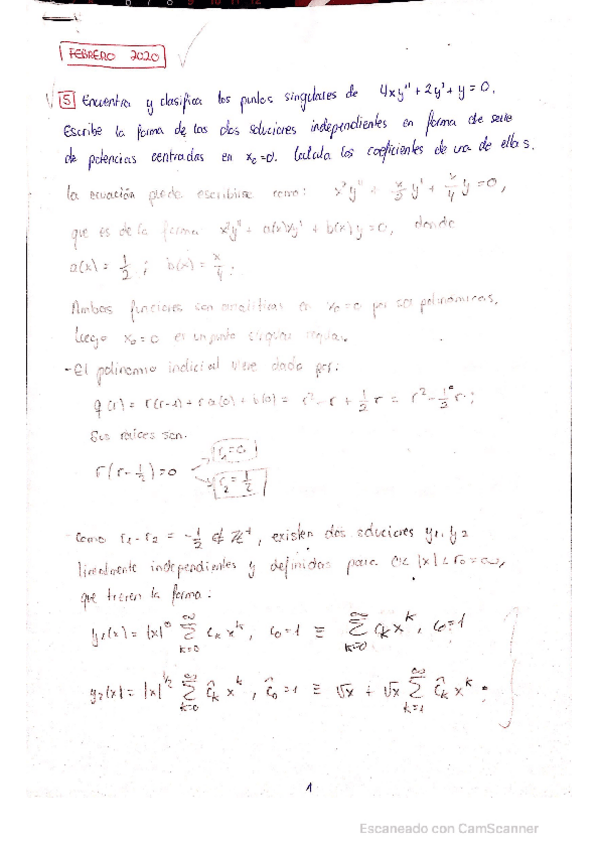 FEBRERO 2020
5 Encuentra y clasifica los puntos singulares de 4xy'' + 2y' + y = 0.
Escribe la forma de las dos soluciones independientes en forma de serie
de potencias centradas en x₀=0. Calcula los coeficientes de una de ellas.
La ecuación puede escribirse como: x²y'' + x/2 y' + x/4 y = 0,
que es de la forma x²y'' + a(x)xy' + b(x)y = 0, donde
a(x) = 1/2 ; b(x) = x/4 ;
Ambas funciones son analíticas en x₀=0 por ser polinómicas,
luego x₀=0 es un punto singular regular.
- El polinomio indicial viene dado por:
q(r) = r(r-1) + r a(0) + b(0) = r² - r + 1/2 r = r² - 1/2 r ;
Sus raíces son:
r(r - 1/2) = 0
r₁ = 0
r₂ = 1/2
Como r₁ - r₂ = -1/2 ∉ Z⁺, existen dos soluciones y₁, y₂
linealmente independientes y definidas para 0 < |x| < r₀ = ∞,
que tienen la forma:
y₁(x) = |x|⁰ ∑ₖ₌₀^∞ cₖxᵏ, c₀=1 ≡ ∑ₖ₌₀^∞ cₖxᵏ, c₀=1
y₂(x) = |x|^1/2 ∑ₖ₌₀^∞ ĉₖxᵏ, ĉ₀=1 ≡ √x + √x ∑ₖ₌₁^∞ ĉₖxᵏ ;
1
Escaneado con CamScanner